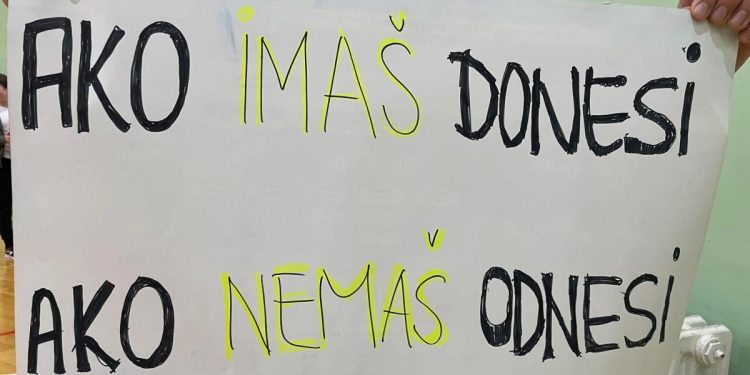 AKO IMAŠ DONESI
AKO NEMAŠ ODNESI